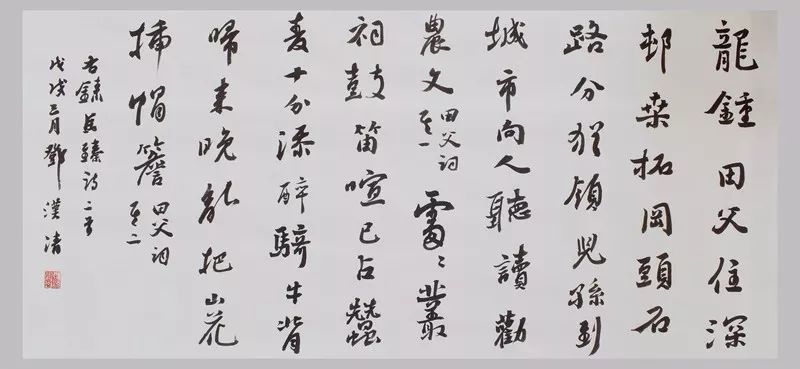 龍鍾田父住深
邨桑柘岡頭石
路分猶領兒孫到
城市向人聽讀勸
農文 田父詞 其一 雷〻叢
祠鼓笛喧已占蠶
麦十分添醉騎牛背
歸来晚亂把山花
插帽簷 田父詞 其二
右錄臻詩二首
戊戌三月鄧漢清